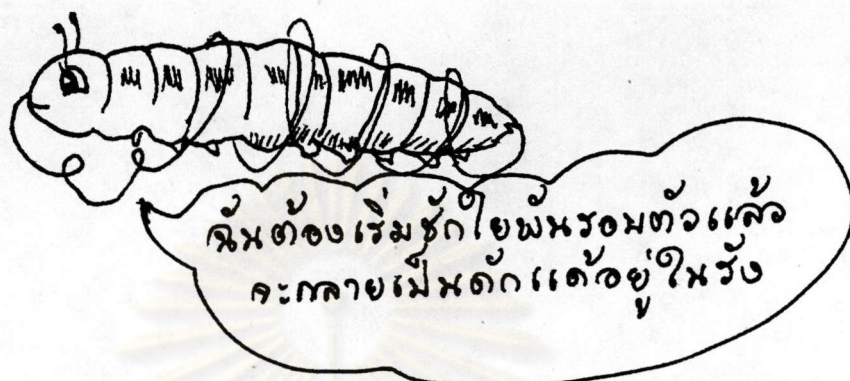 ฉันต้องเริ่มชักใยพันรอบตัวแล้ว
จะกลายเป็นดักแด้อยู่ในรัง